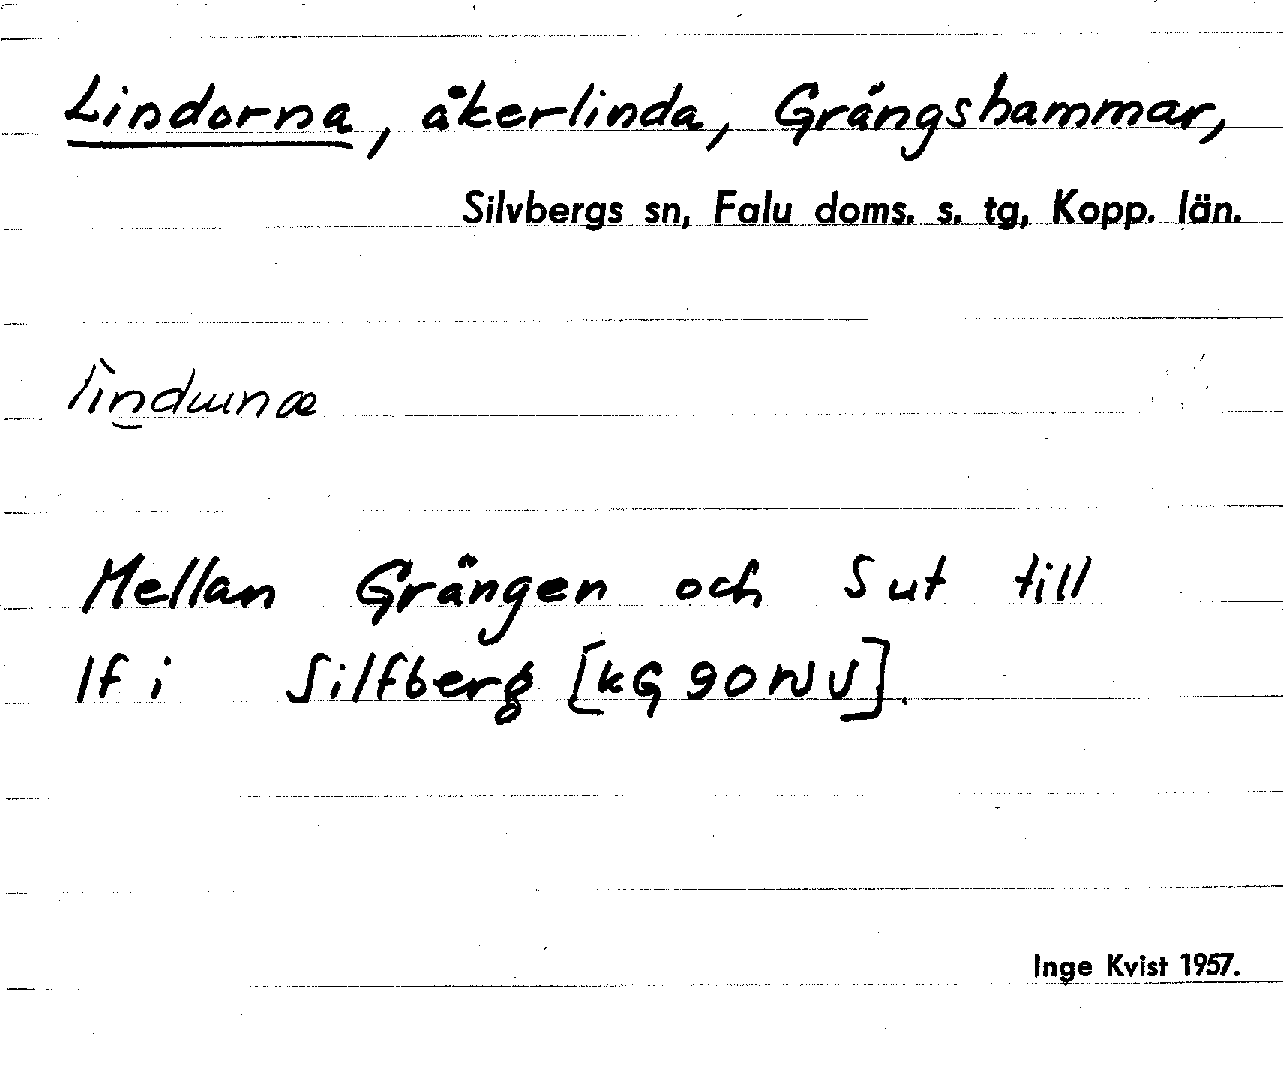 Lindorna, åkerlinda, Grängshammar,
Silvbergs sn, Falu doms. s. tg, Kopp. län.
Mellan Grängen och S ut till
lf i Silfberg [kG 90 NV].
Inge Kvist 1957.